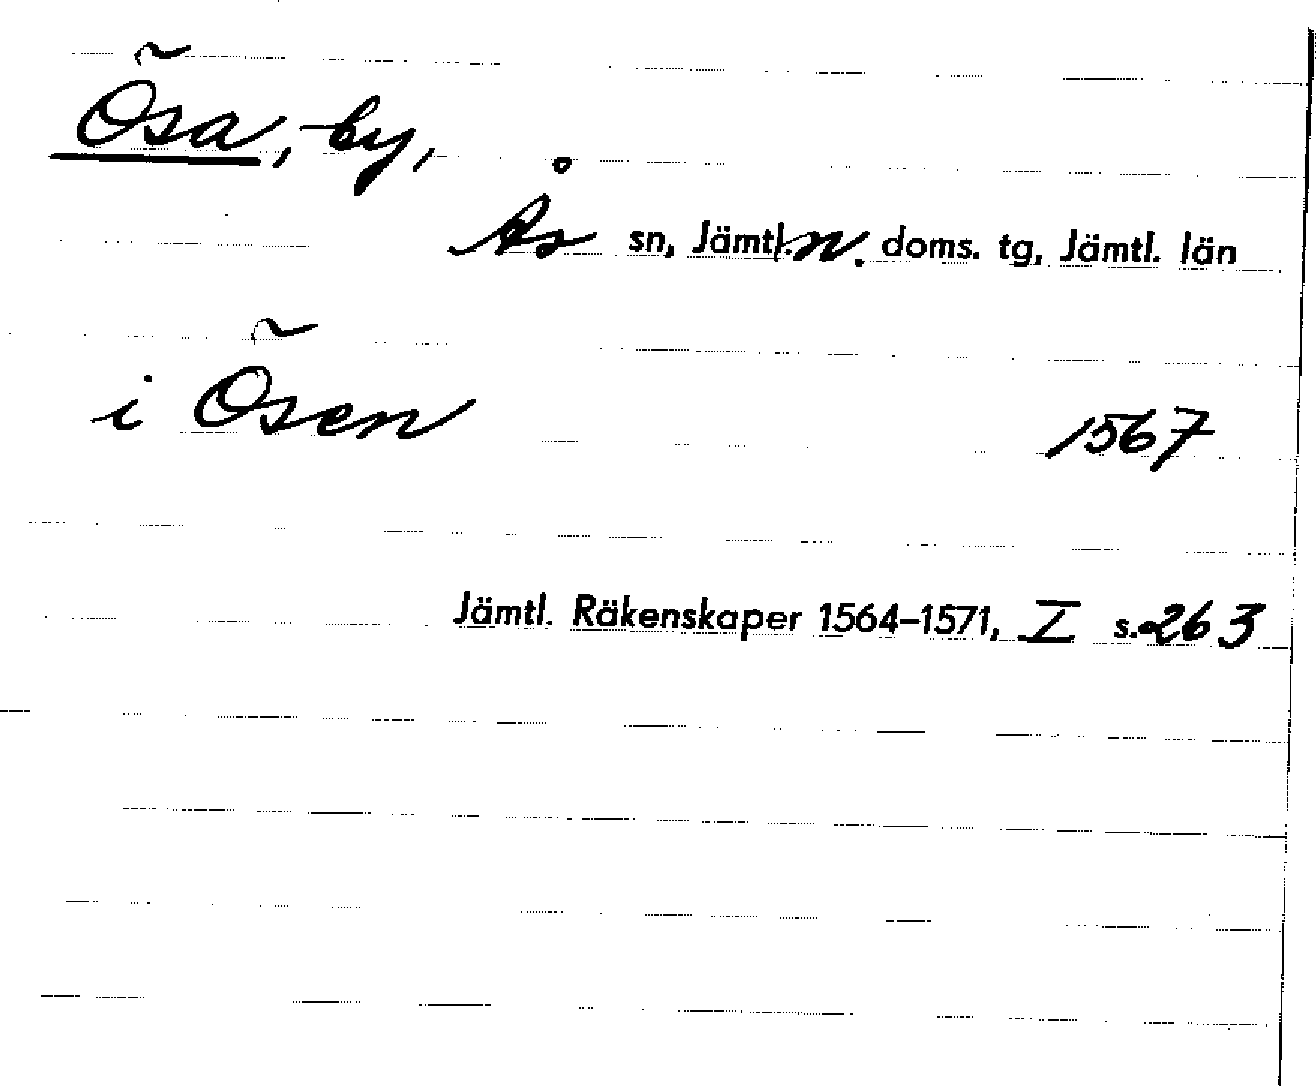 Ösa, by,
Ås sn, Jämtl. n. doms. tg, Jämtl. län
i Ösen 1567
Jämtl. Räkenskaper 1564–1571, I s. 263